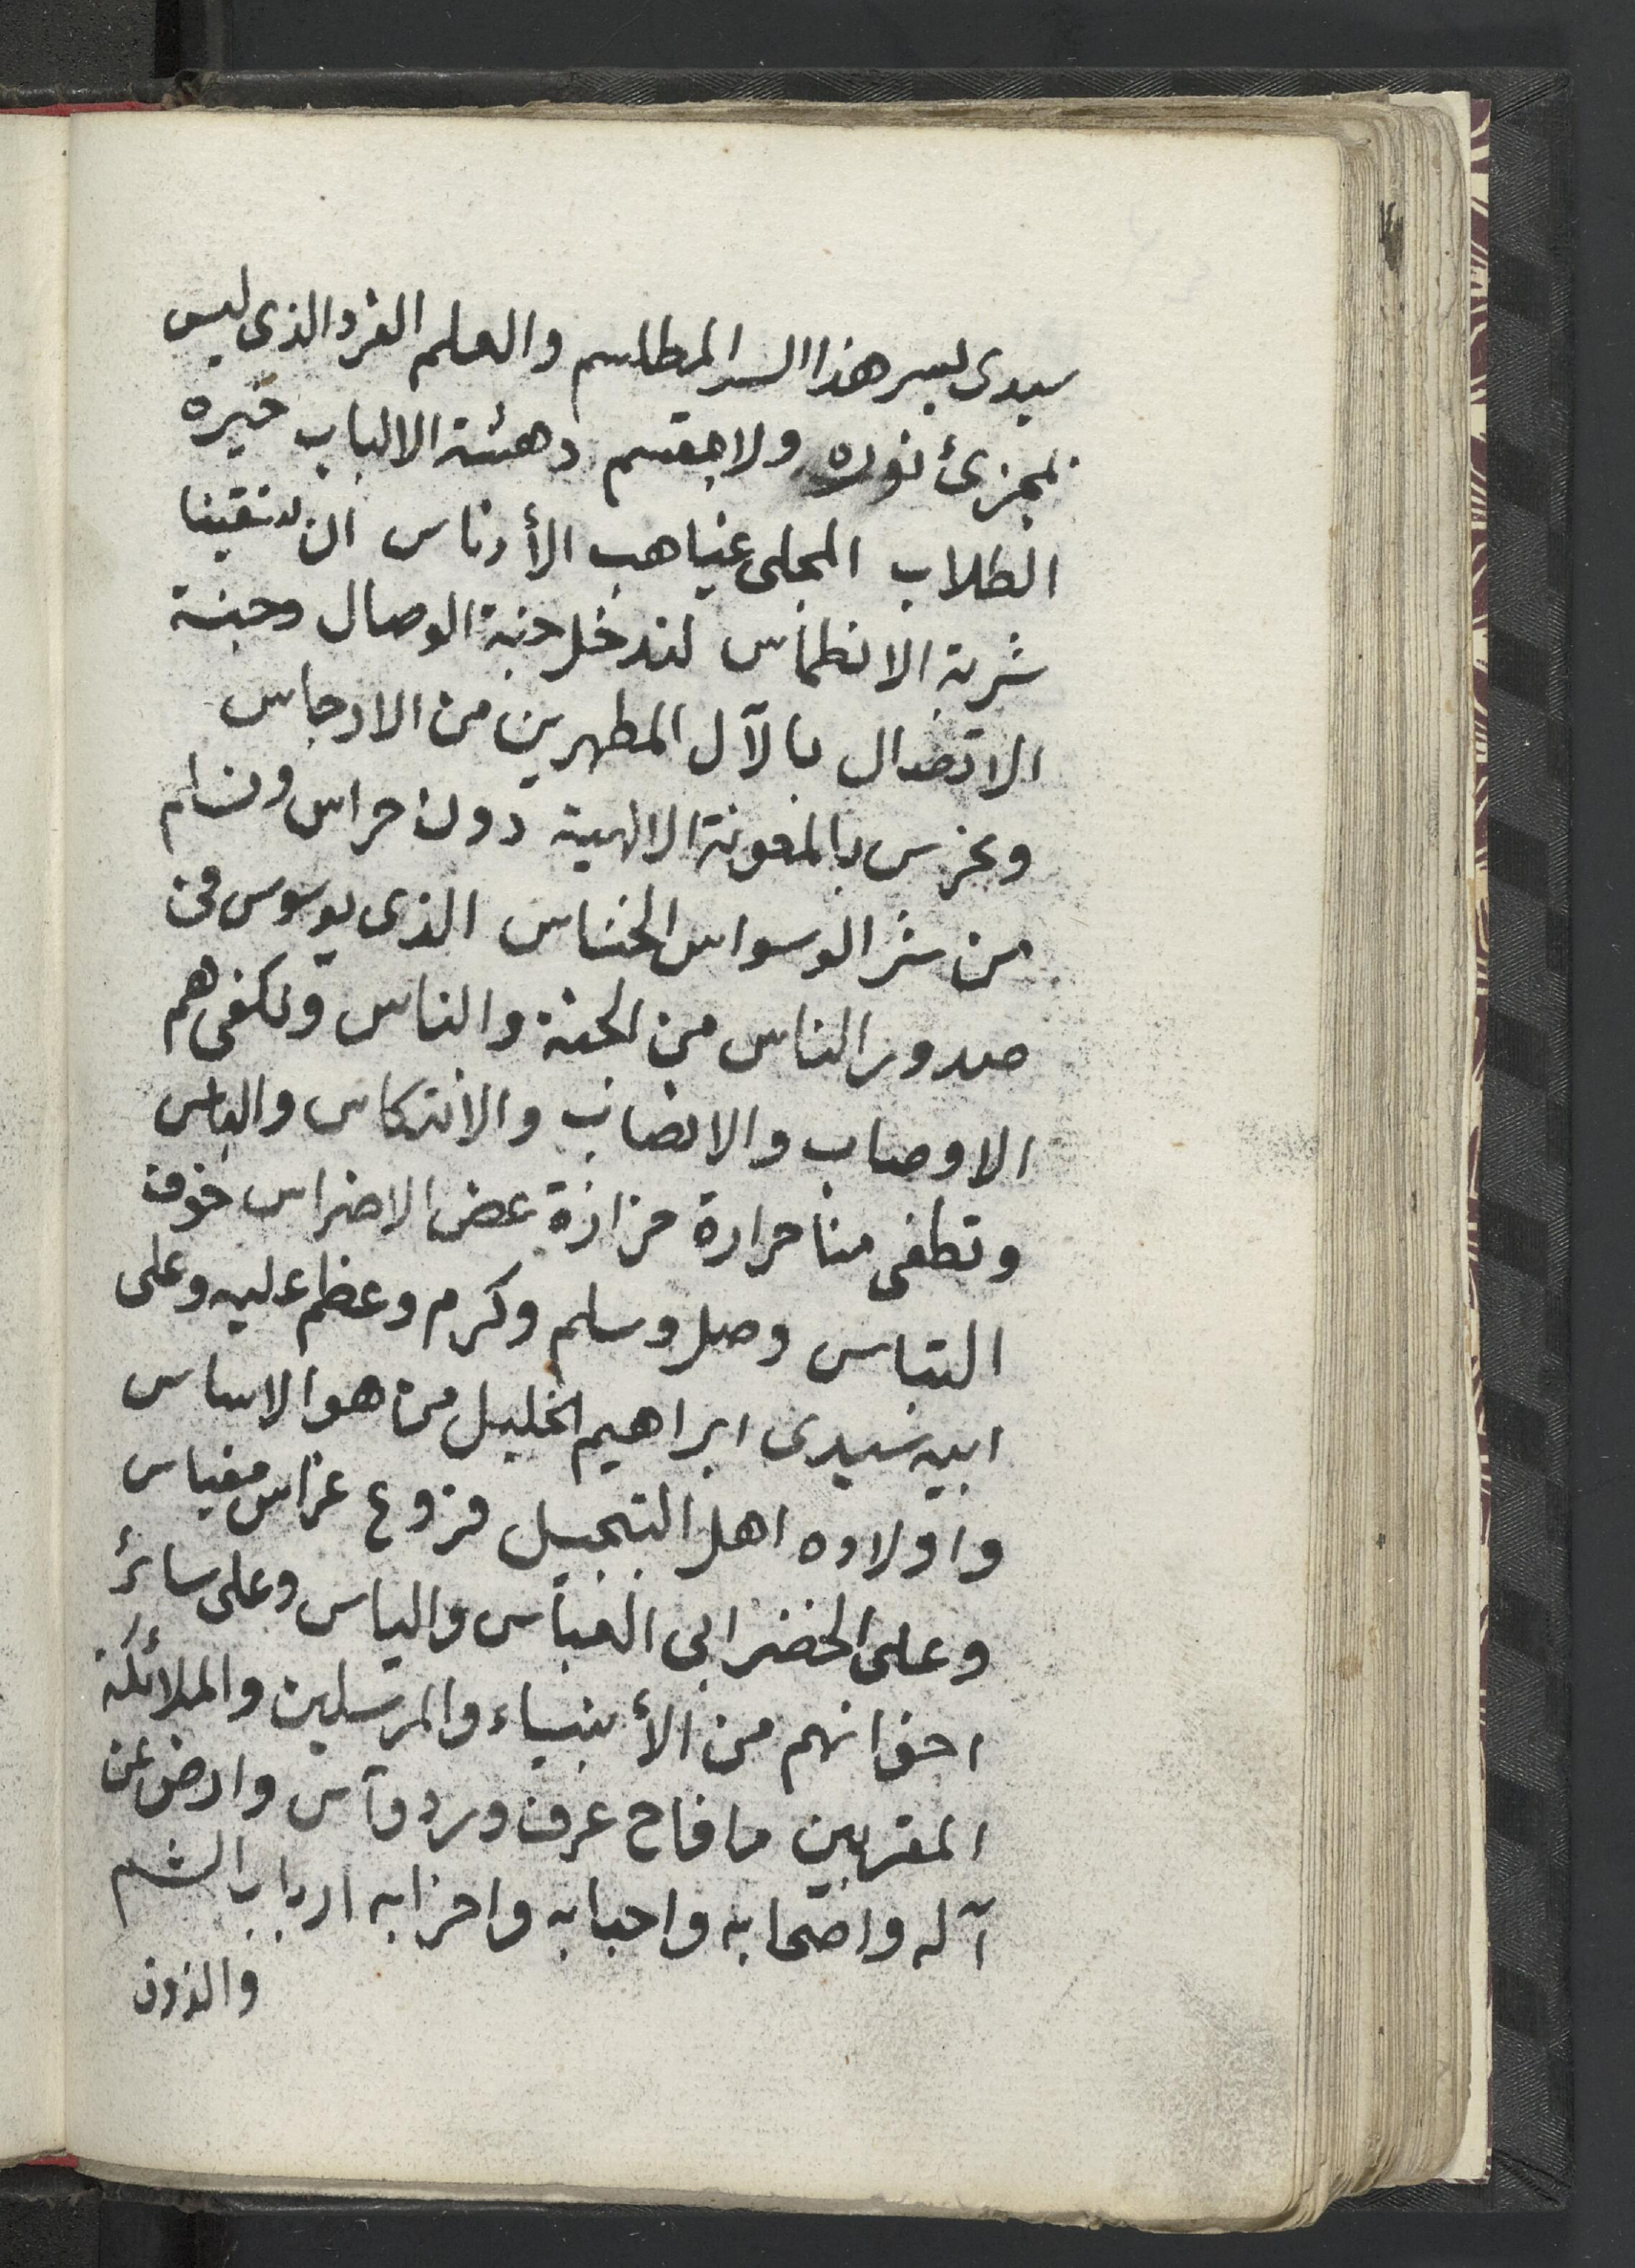 سيدى بسر هذا السر المطلسم والعلم الفرد الذى ليس
بمجزئ نوره ولا مقتسم دهشة الالباب حيرة
الطلاب المجلى غياهب الأدناس ان تسقينا
شربة الانطماس لندخل جنة الوصال وجنة
الاتصال بالآل المطهرين من الارجاس
ونحرس بالمعونة الالهية دون حراس ونسلم
من شر الوسواس الخناس الذى يوسوس فى
صدور الناس من الجنة والناس ونكفى هم
الاوصاب والانصاب والانتكاس والباس
وتطفى منا حرارة حزازة عض الاضراس خوف
التباس وصل وسلم وكرم وعظم عليه وعلى
ابيه سيدى ابراهيم الخليل من هو الاساس
واولاده اهل التبجيل فروع غراس مغياس
وعلى الخضر ابى العباس والياس وعلى سائر
اخوانهم من الأنبياء والمرسلين والملائكة
المقربين ما فاح عرف ورد وآس وارض عن
آله واصحابه واحبابه واحزابه ارباب الشم
والذوق